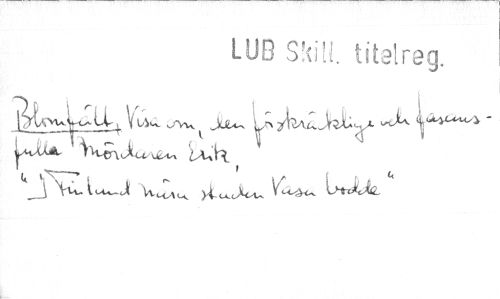 LUB Skill. titelreg.
Blomfält, Visa om, den förskräcklige och fasans-
fulla Mördaren Erik,
"I Finland nära staden Vasa bodde"